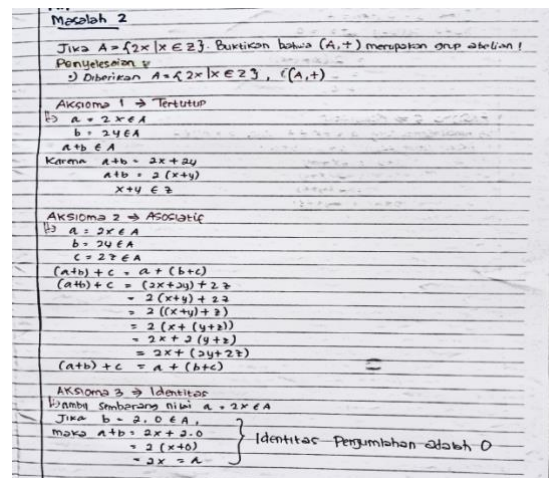 Masalah 2
Jika A = {2x | x ∈ Z}. Buktikan bahwa (A, +) merupakan grup abelian !
Penyelesaian :
•) Diberikan A = {2x | x ∈ Z}, (A, +)
Aksioma 1 → Tertutup
↳ a = 2x ∈ A
b = 2y ∈ A
a+b ∈ A
Karena a+b = 2x + 2y
a+b = 2 (x+y)
x+y ∈ Z
Aksioma 2 → Asosiatif
↳ a = 2x ∈ A
b = 2y ∈ A
c = 2z ∈ A
(a+b) + c = a + (b+c)
(a+b) + c = (2x+2y) + 2z
= 2 (x+y) + 2z
= 2 ((x+y) + z)
= 2 (x + (y+z))
= 2x + 2 (y+z)
= 2x + (2y+2z)
(a+b) + c = a + (b+c)
Aksioma 3 → Identitas
↳ ambil sembarang nilai a = 2x ∈ A
Jika b = 2.0 ∈ A,
maka a+b = 2x + 2.0
= 2 (x+0)
= 2x = A
Identitas Penjumlahan adalah 0